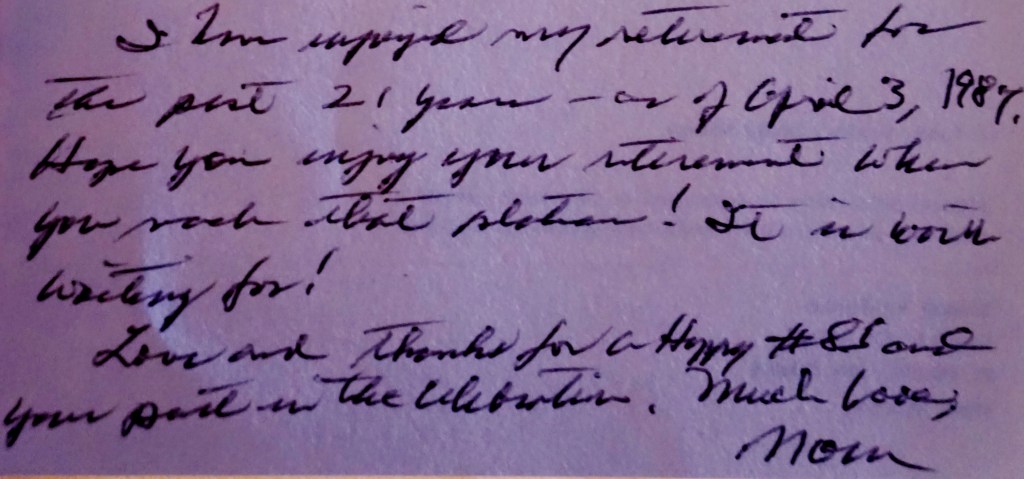 I have enjoyed my retirement for
the past 21 years - as of April 3, 1987.
Hope you enjoy your retirement when
you reach that plateau! It is worth
waiting for!
Love and thanks for a Happy #85 and
your part in the celebration. Much love,
Mom